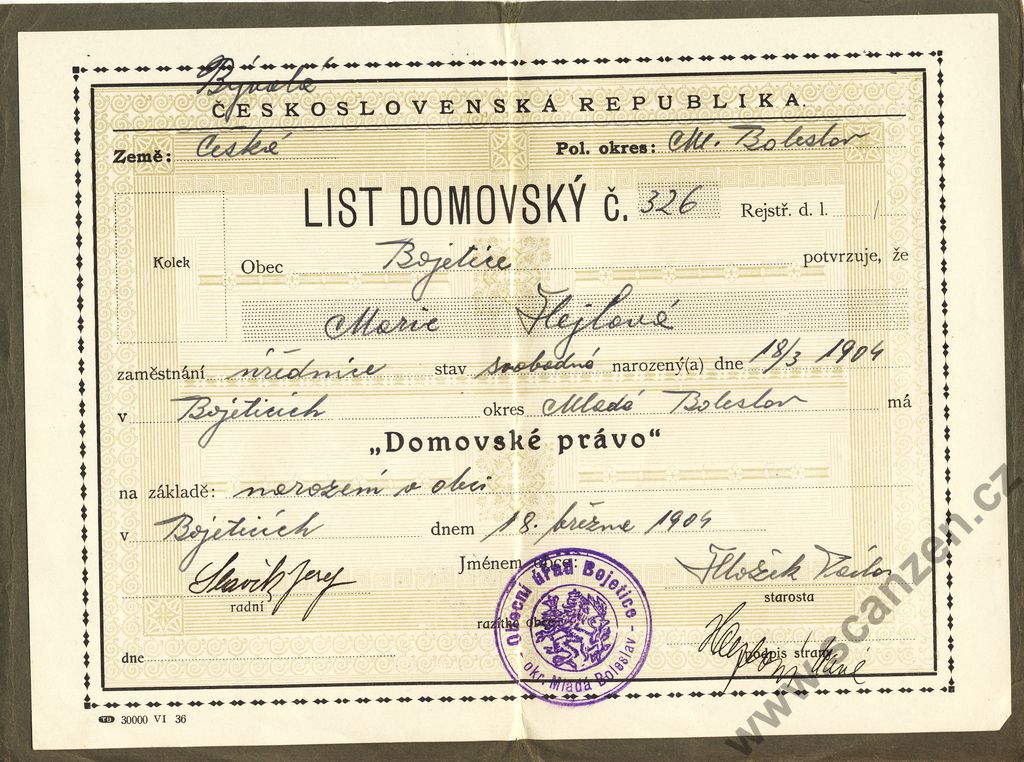 Bývalá
ČESKOSLOVENSKÁ REPUBLIKA.
Země: Česká Pol. okres: Ml. Boleslav
LIST DOMOVSKÝ č. 326 Rejstř. d. l. /
Kolek
Obec Bojetice potvrzuje, že
Marie Hejlová
zaměstnání úřednice stav svobodná narozený(a) dne 18/3 1904
v Bojeticích okres Mladá Boleslav má
„Domovské právo“
na základě: narození v obci
v Bojeticích dnem 18. března 1904
Jménem obce:
Slavík Josef
radní
starosta
razítko obce
Obecní úřad Bojetice
- okr. Mladá Boleslav -
podpis strany
dne
TÜ 30000 VI 36
www.scanzen.cz